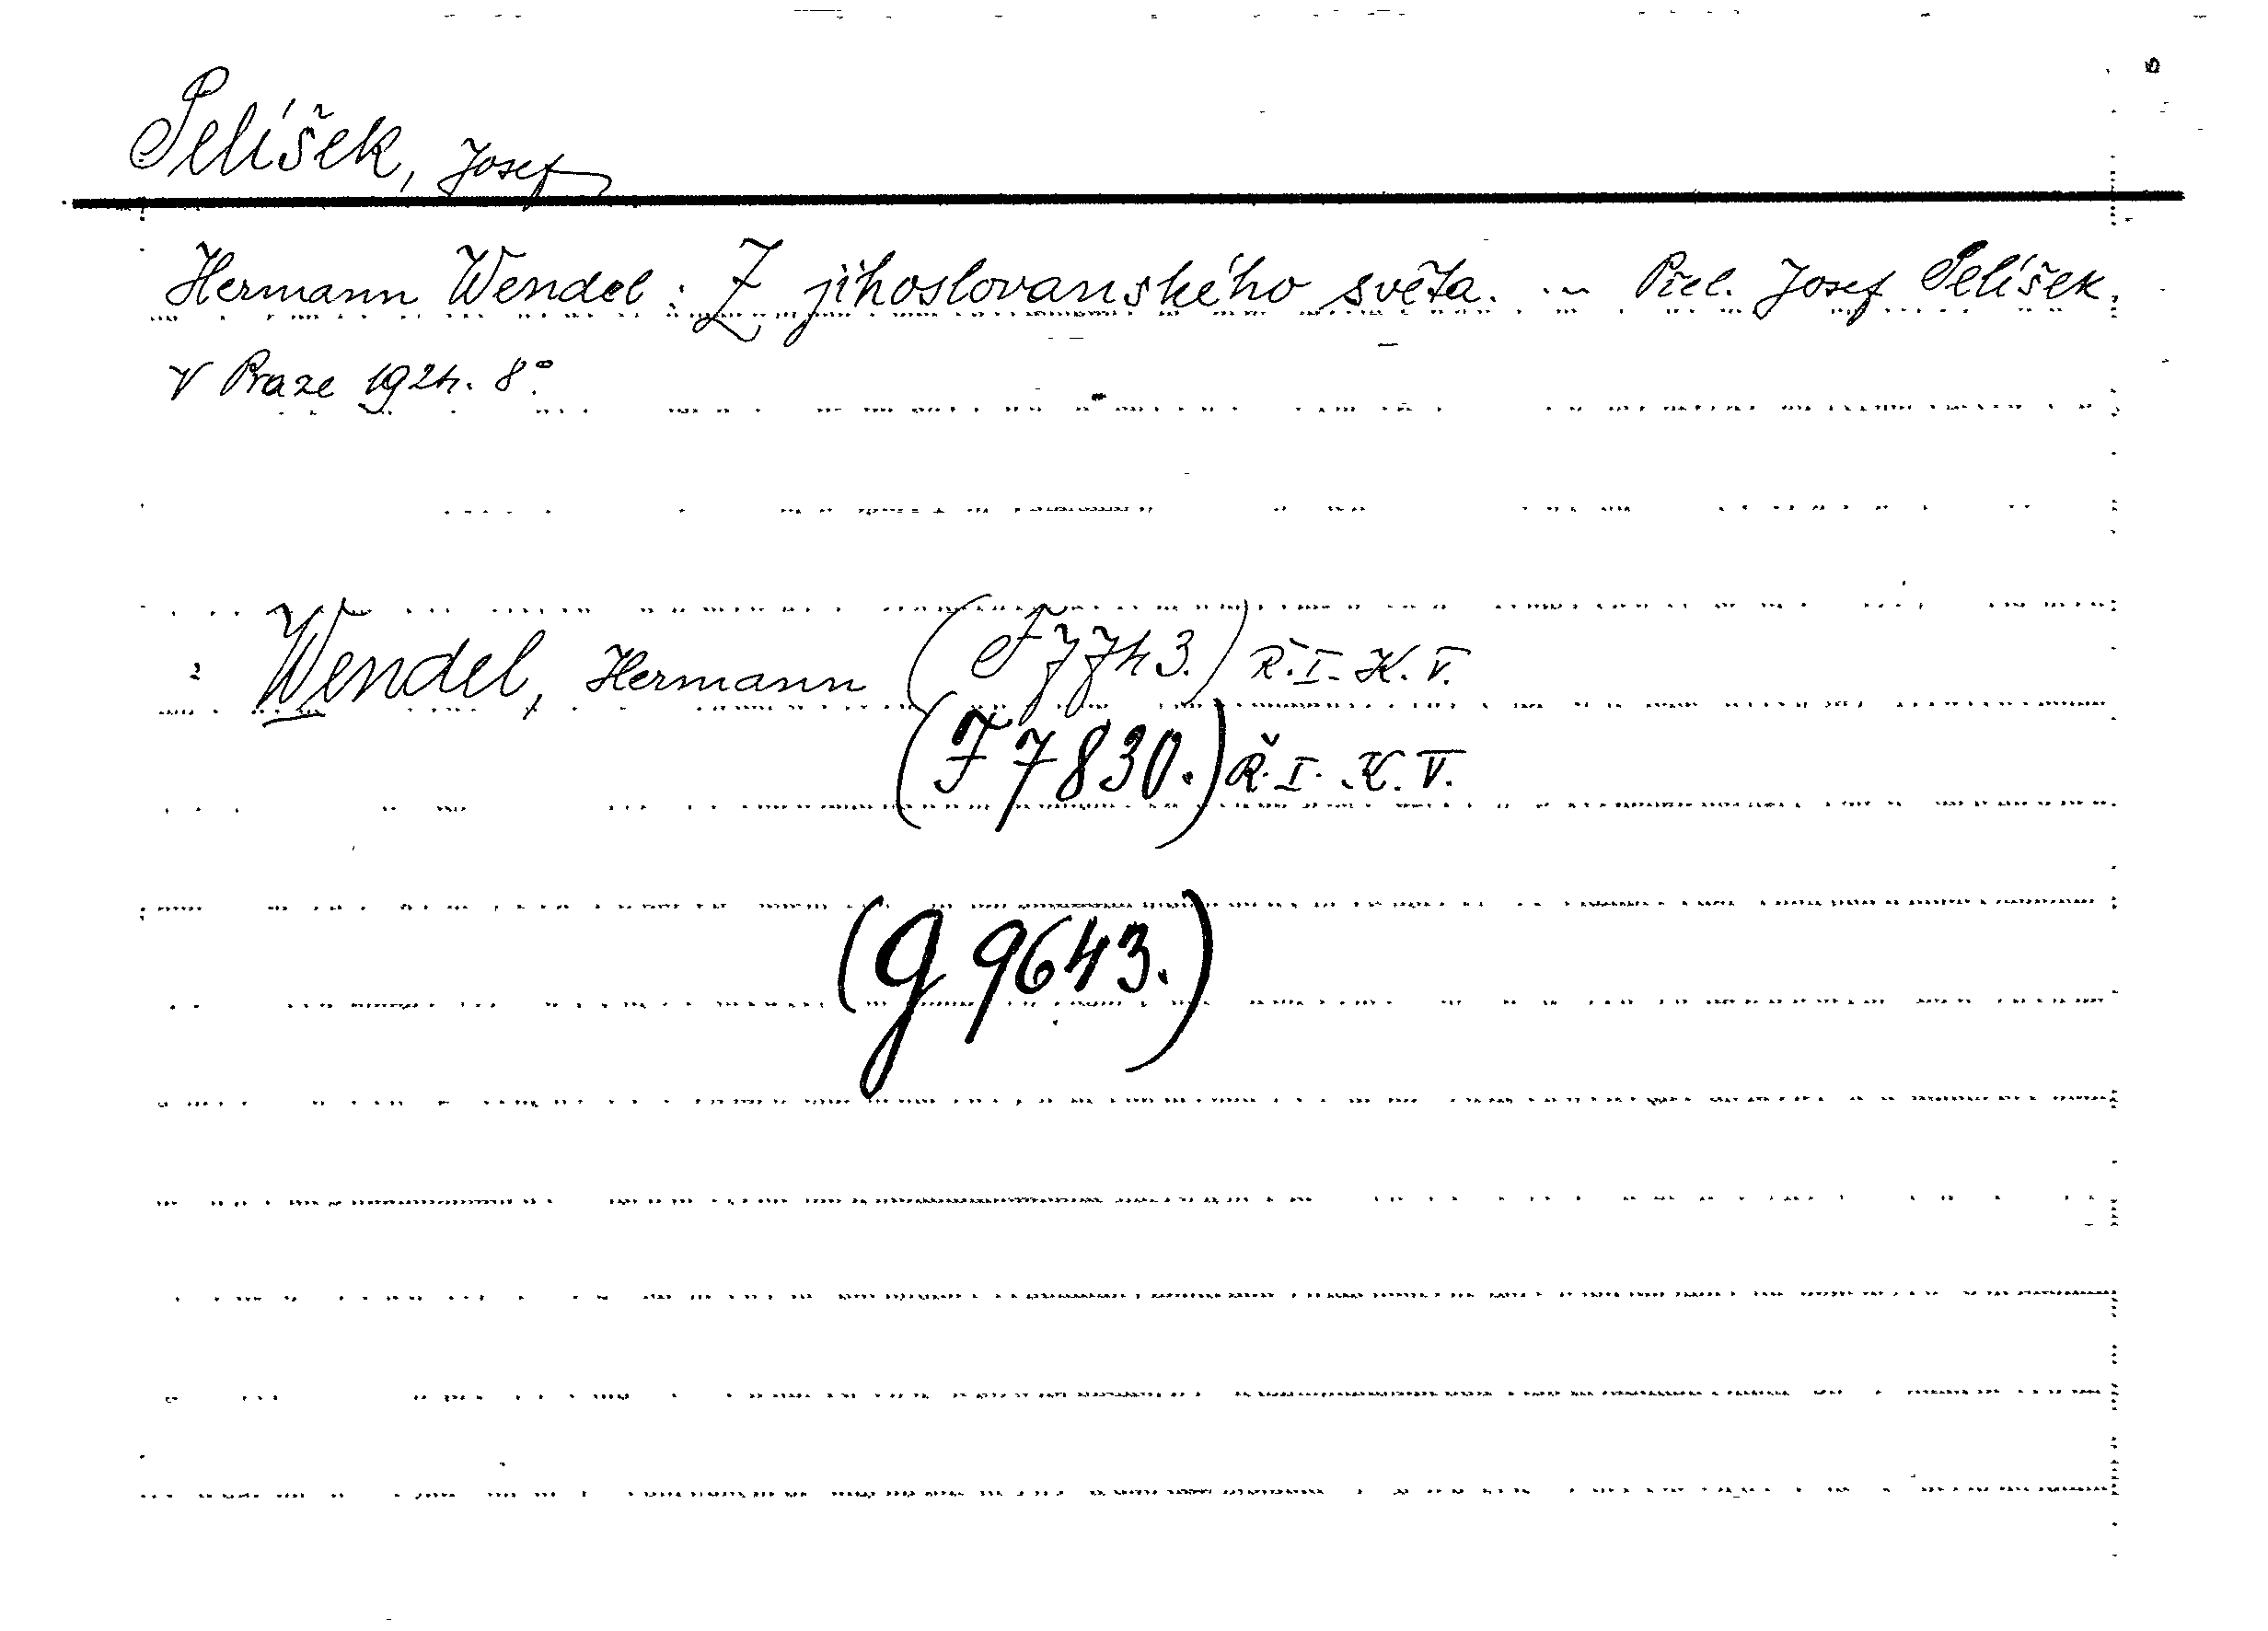 Pelíšek, Josef
Hermann Wendel: Z jihoslovanského světa. ... Přel. Josef Pelíšek.
V Praze 1924. 8°.
Wendel, Hermann (F 7743.) Ř. I. K. V.
(F 7830.) Ř. I. K. V.
(G 9643.)